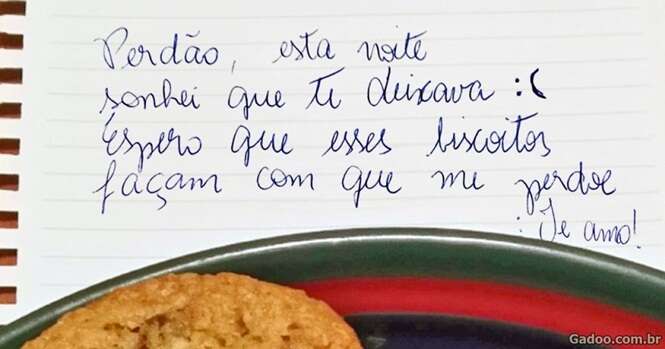 Perdão, esta noite
sonhei que te deixava :(
Espero que esses biscoitos
façam com que me perdoe
: Te amo!
Gadoo.com.br